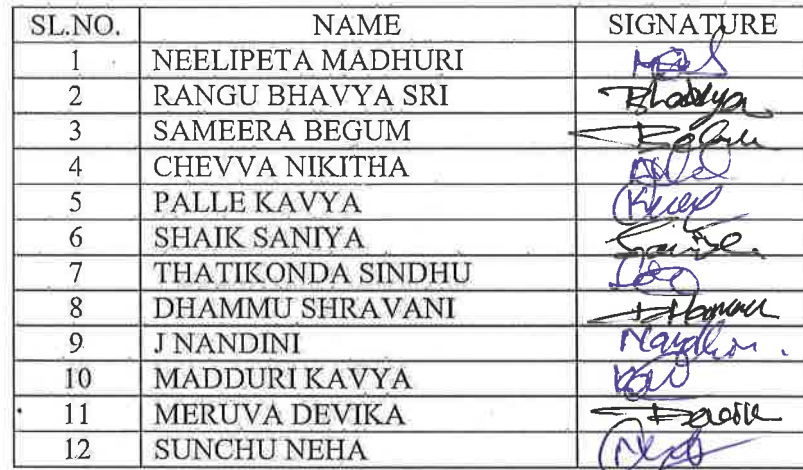 SL.NO. NAME SIGNATURE
1 NEELIPETA MADHURI
2 RANGU BHAVYA SRI Bhavya
3 SAMEERA BEGUM
4 CHEVVA NIKITHA
5 PALLE KAVYA
6 SHAIK SANIYA
7 THATIKONDA SINDHU
8 DHAMMU SHRAVANI
9 J NANDINI
10 MADDURI KAVYA
11 MERUVA DEVIKA
12 SUNCHU NEHA